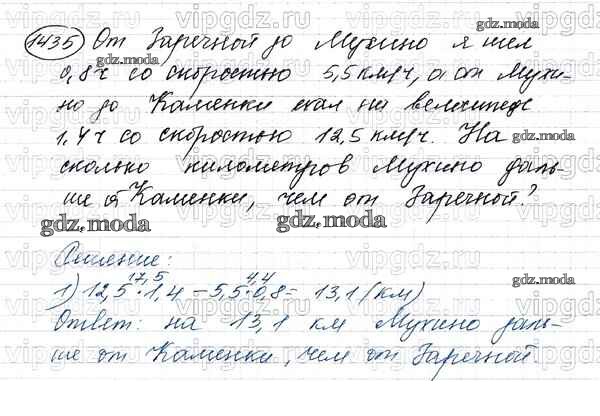 1435 От Заречной до Мухино я шел
0,8ч со скоростью 5,5 км/ч, а от Мухи-
но до Каменки ехал на велосипеде
1,4 ч со скоростью 12,5 км/ч. На
сколько километров Мухино даль-
ше от Каменки, чем от Заречной?
Решение:
17,5 4,4
1) 12,5 · 1,4 – 5,5 · 0,8 = 13,1 (км)
Ответ: на 13,1 км Мухино даль-
ше от Каменки, чем от Заречной.
gdz.moda
gdz.moda
gdz.moda
gdz.moda
gdz.moda
gdz.moda
gdz.moda
vipgdz.ru